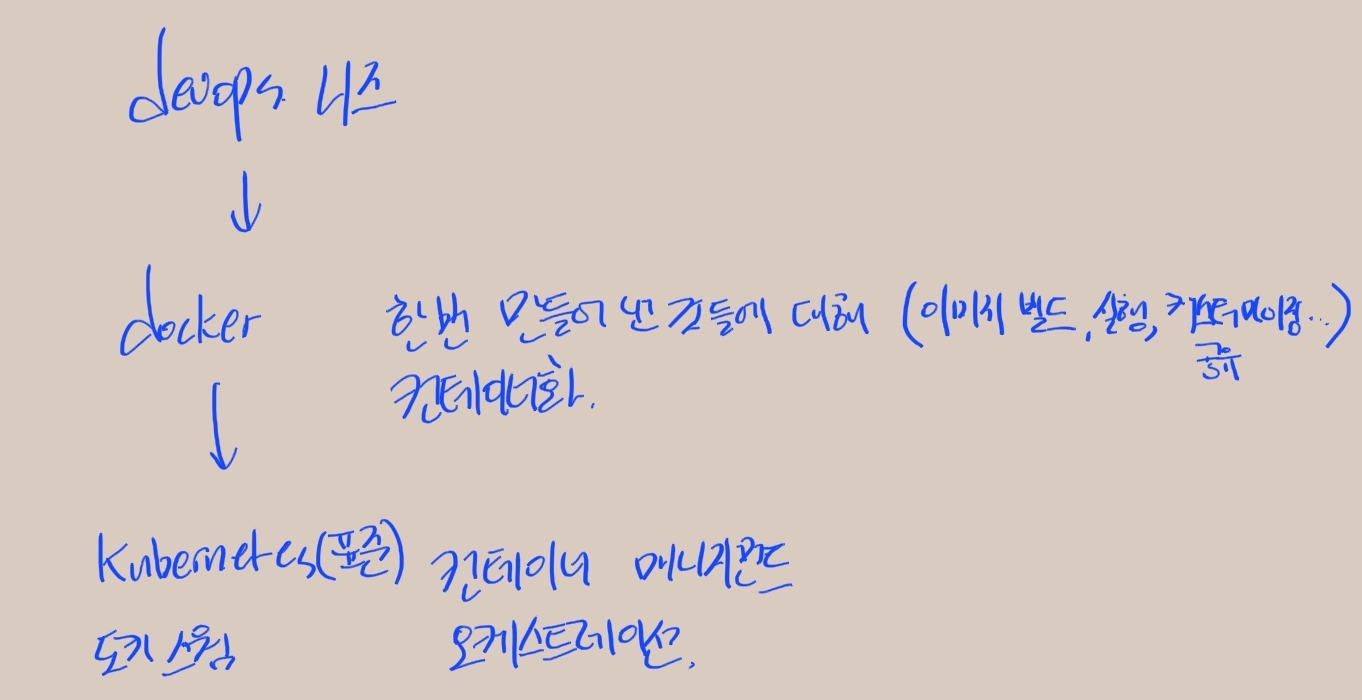 devops 니즈
↓
docker 한번 만들어 낸 것들에 대해 (이미지 빌드, 실행, 커스터마이징...)
공유
컨테이너화.
↓
Kubernetes(표준) 컨테이너 매니지먼트
도커 스웜 오케스트레이션.